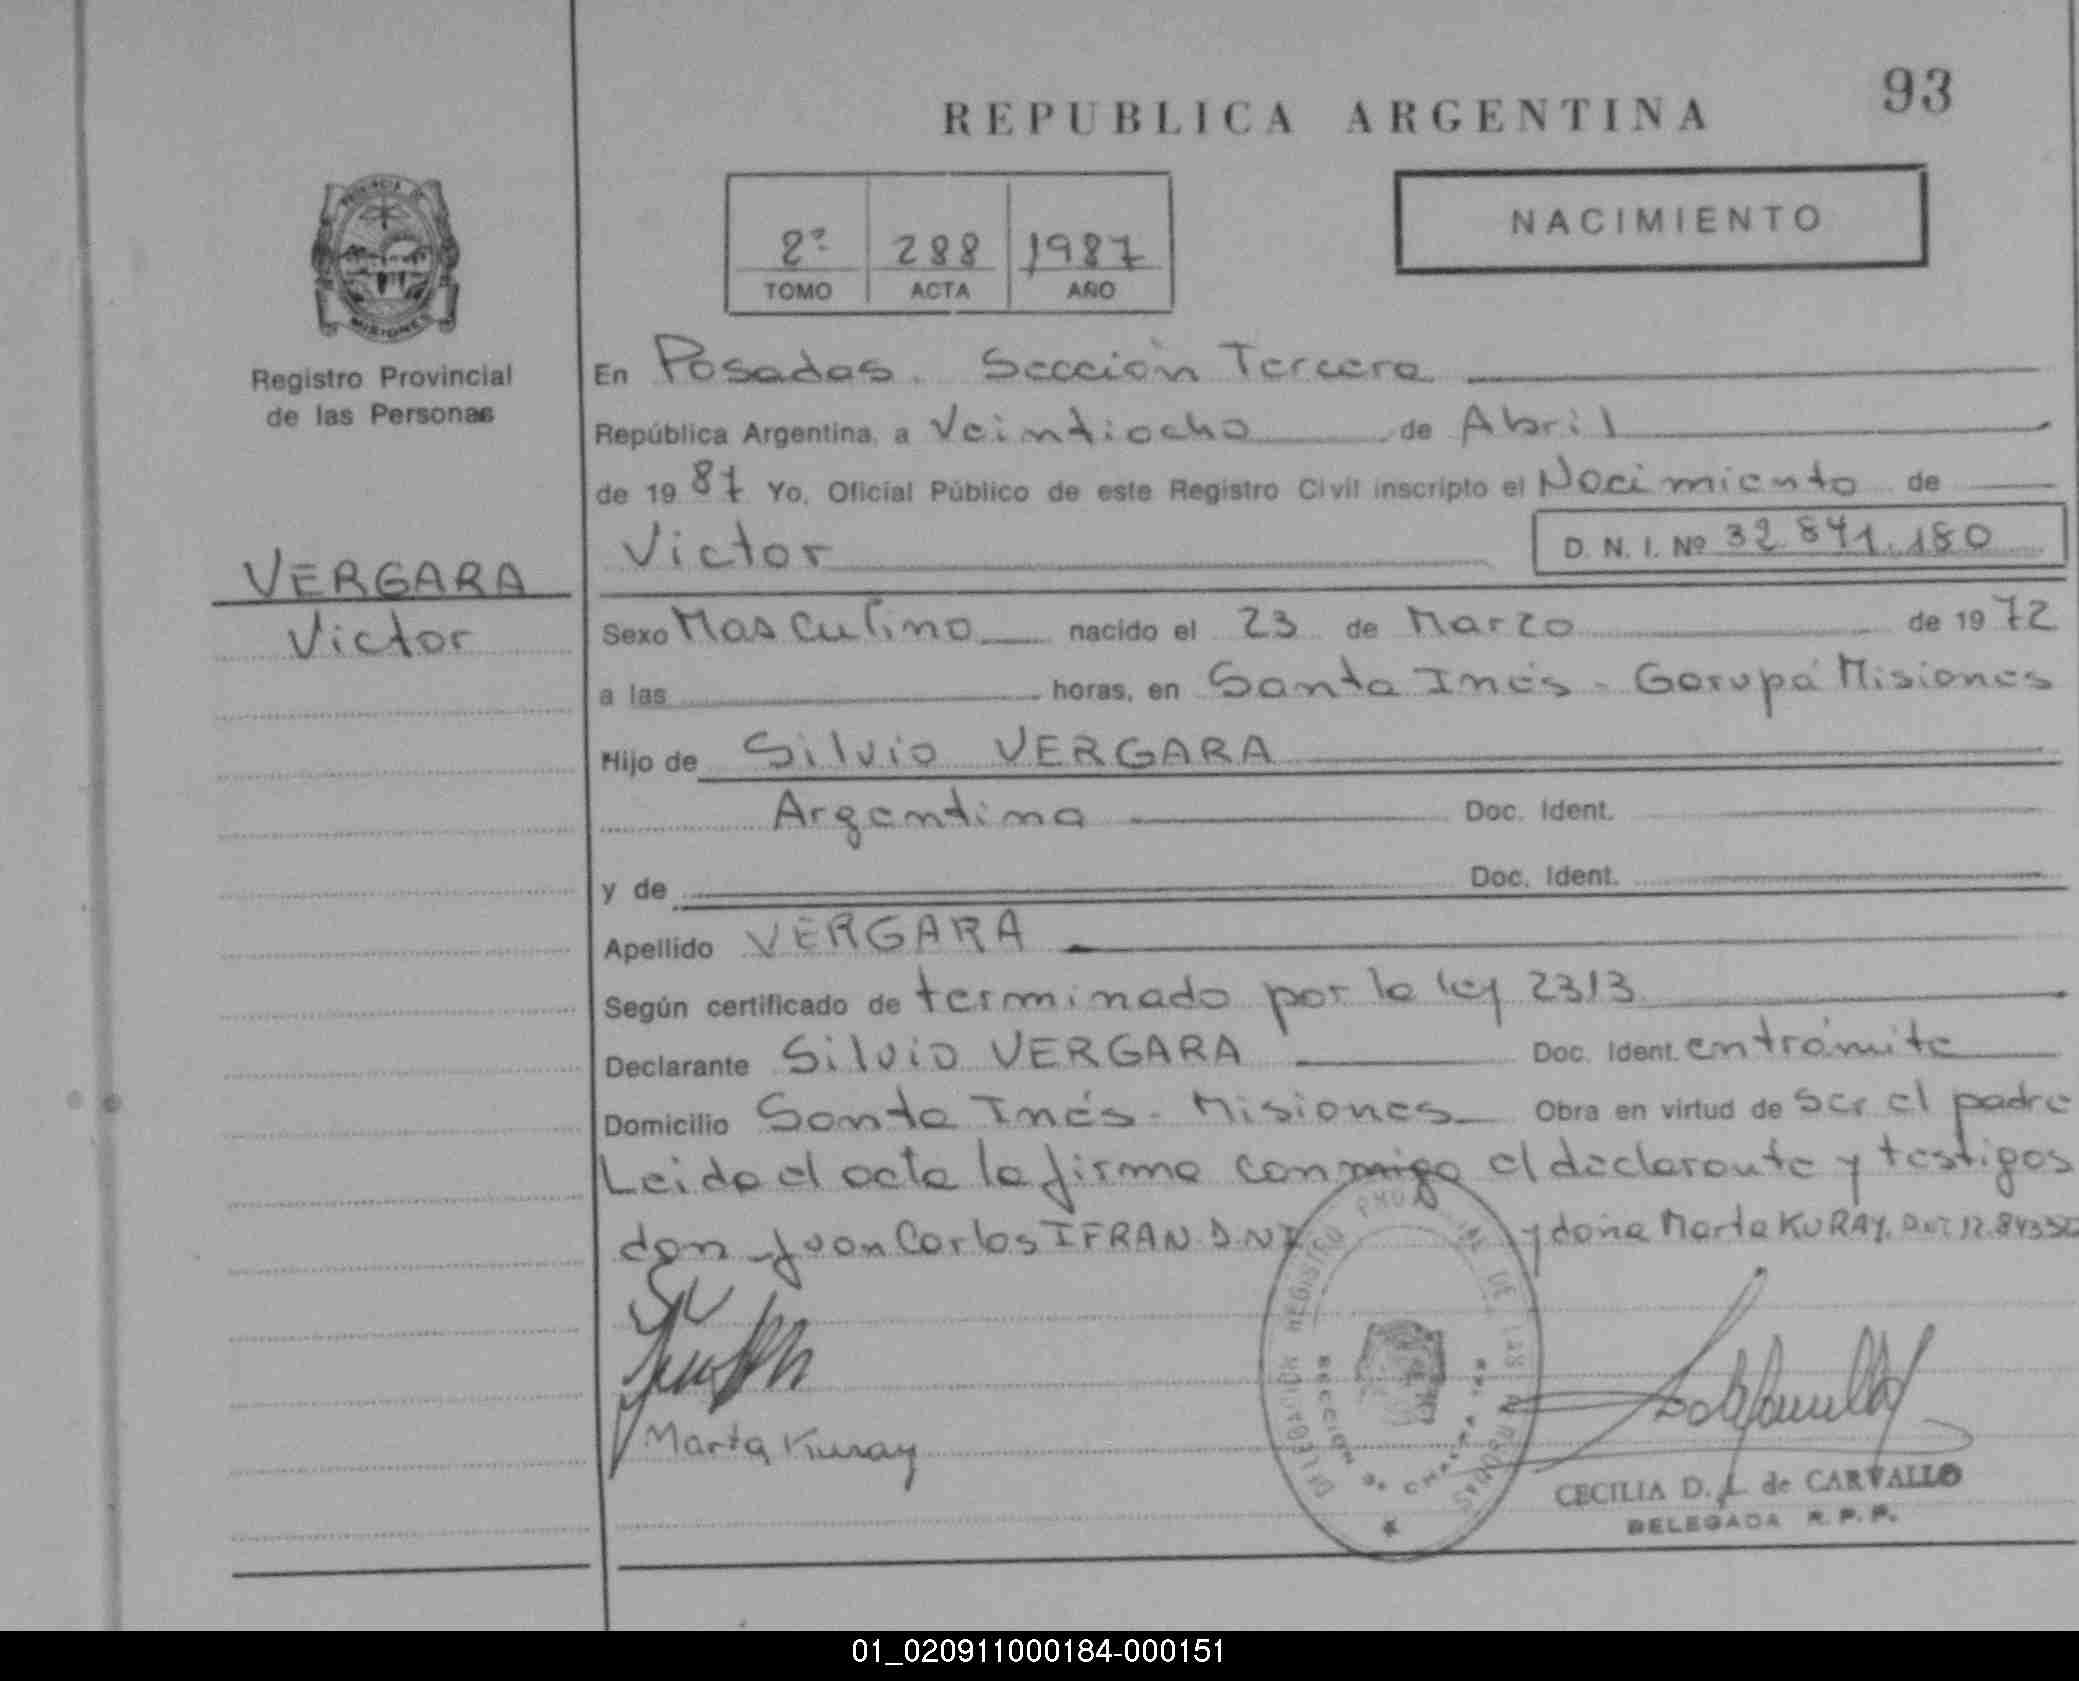 93
REPUBLICA ARGENTINA
NACIMIENTO
2º 288 1987
TOMO ACTA AÑO
PROVINCIA DE
MISIONES
Registro Provincial
de las Personas
VERGARA
Victor
En Posadas. Sección Tercera
República Argentina, a Veintiocho de Abril
de 1987 Yo, Oficial Público de este Registro Civil inscripto el Nacimiento de
Victor D. N. I. Nº 32.841.180
Sexo Masculino nacido el 23 de Marzo de 1972
a las horas, en Santa Inés - Garupá Misiones
Hijo de Silvio VERGARA
Argentina Doc. Ident.
y de Doc. Ident.
Apellido VERGARA
Según certificado de terminado por la ley 2313
Declarante Silvio VERGARA Doc. Ident. en trámite
Domicilio Santa Inés - Misiones Obra en virtud de ser el padre
Leida el acta la firma conmigo el declarante y testigos
don Juan Carlos IFRAN DNI y doña Marta KURAY. DNI 12.
SV
Marta Kuray
DELEGACION REGISTRO DE LAS PERSONAS
SECCION
CECILIA D. L. de CARVALLO
DELEGADA R. P. P.
01_020911000184-000151